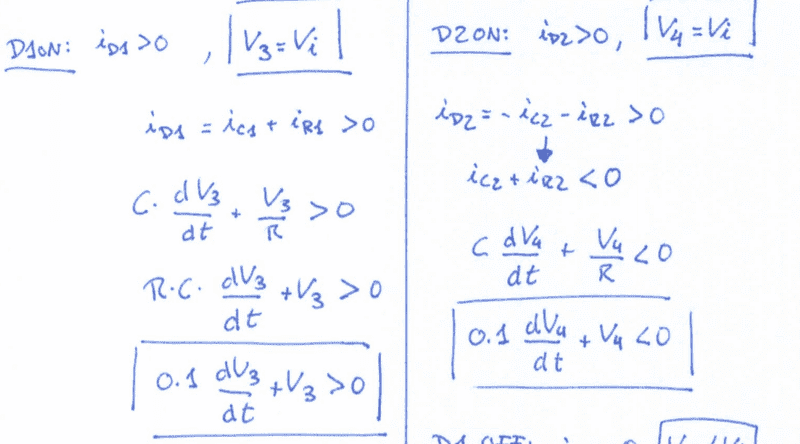 D1ON: iD1 >0 , V3=Vi
iD1 = iC1 + iR1 >0
C. dV3/dt + V3/R > 0
R.C. dV3/dt +V3 > 0
0.1 dV3/dt +V3 >0
D2ON: iD2>0, V4=Vi
iD2= - iC2 - iR2 >0
iC2 + iR2 <0
C dV4/dt + V4/R <0
0.1 dV4/dt + V4 <0